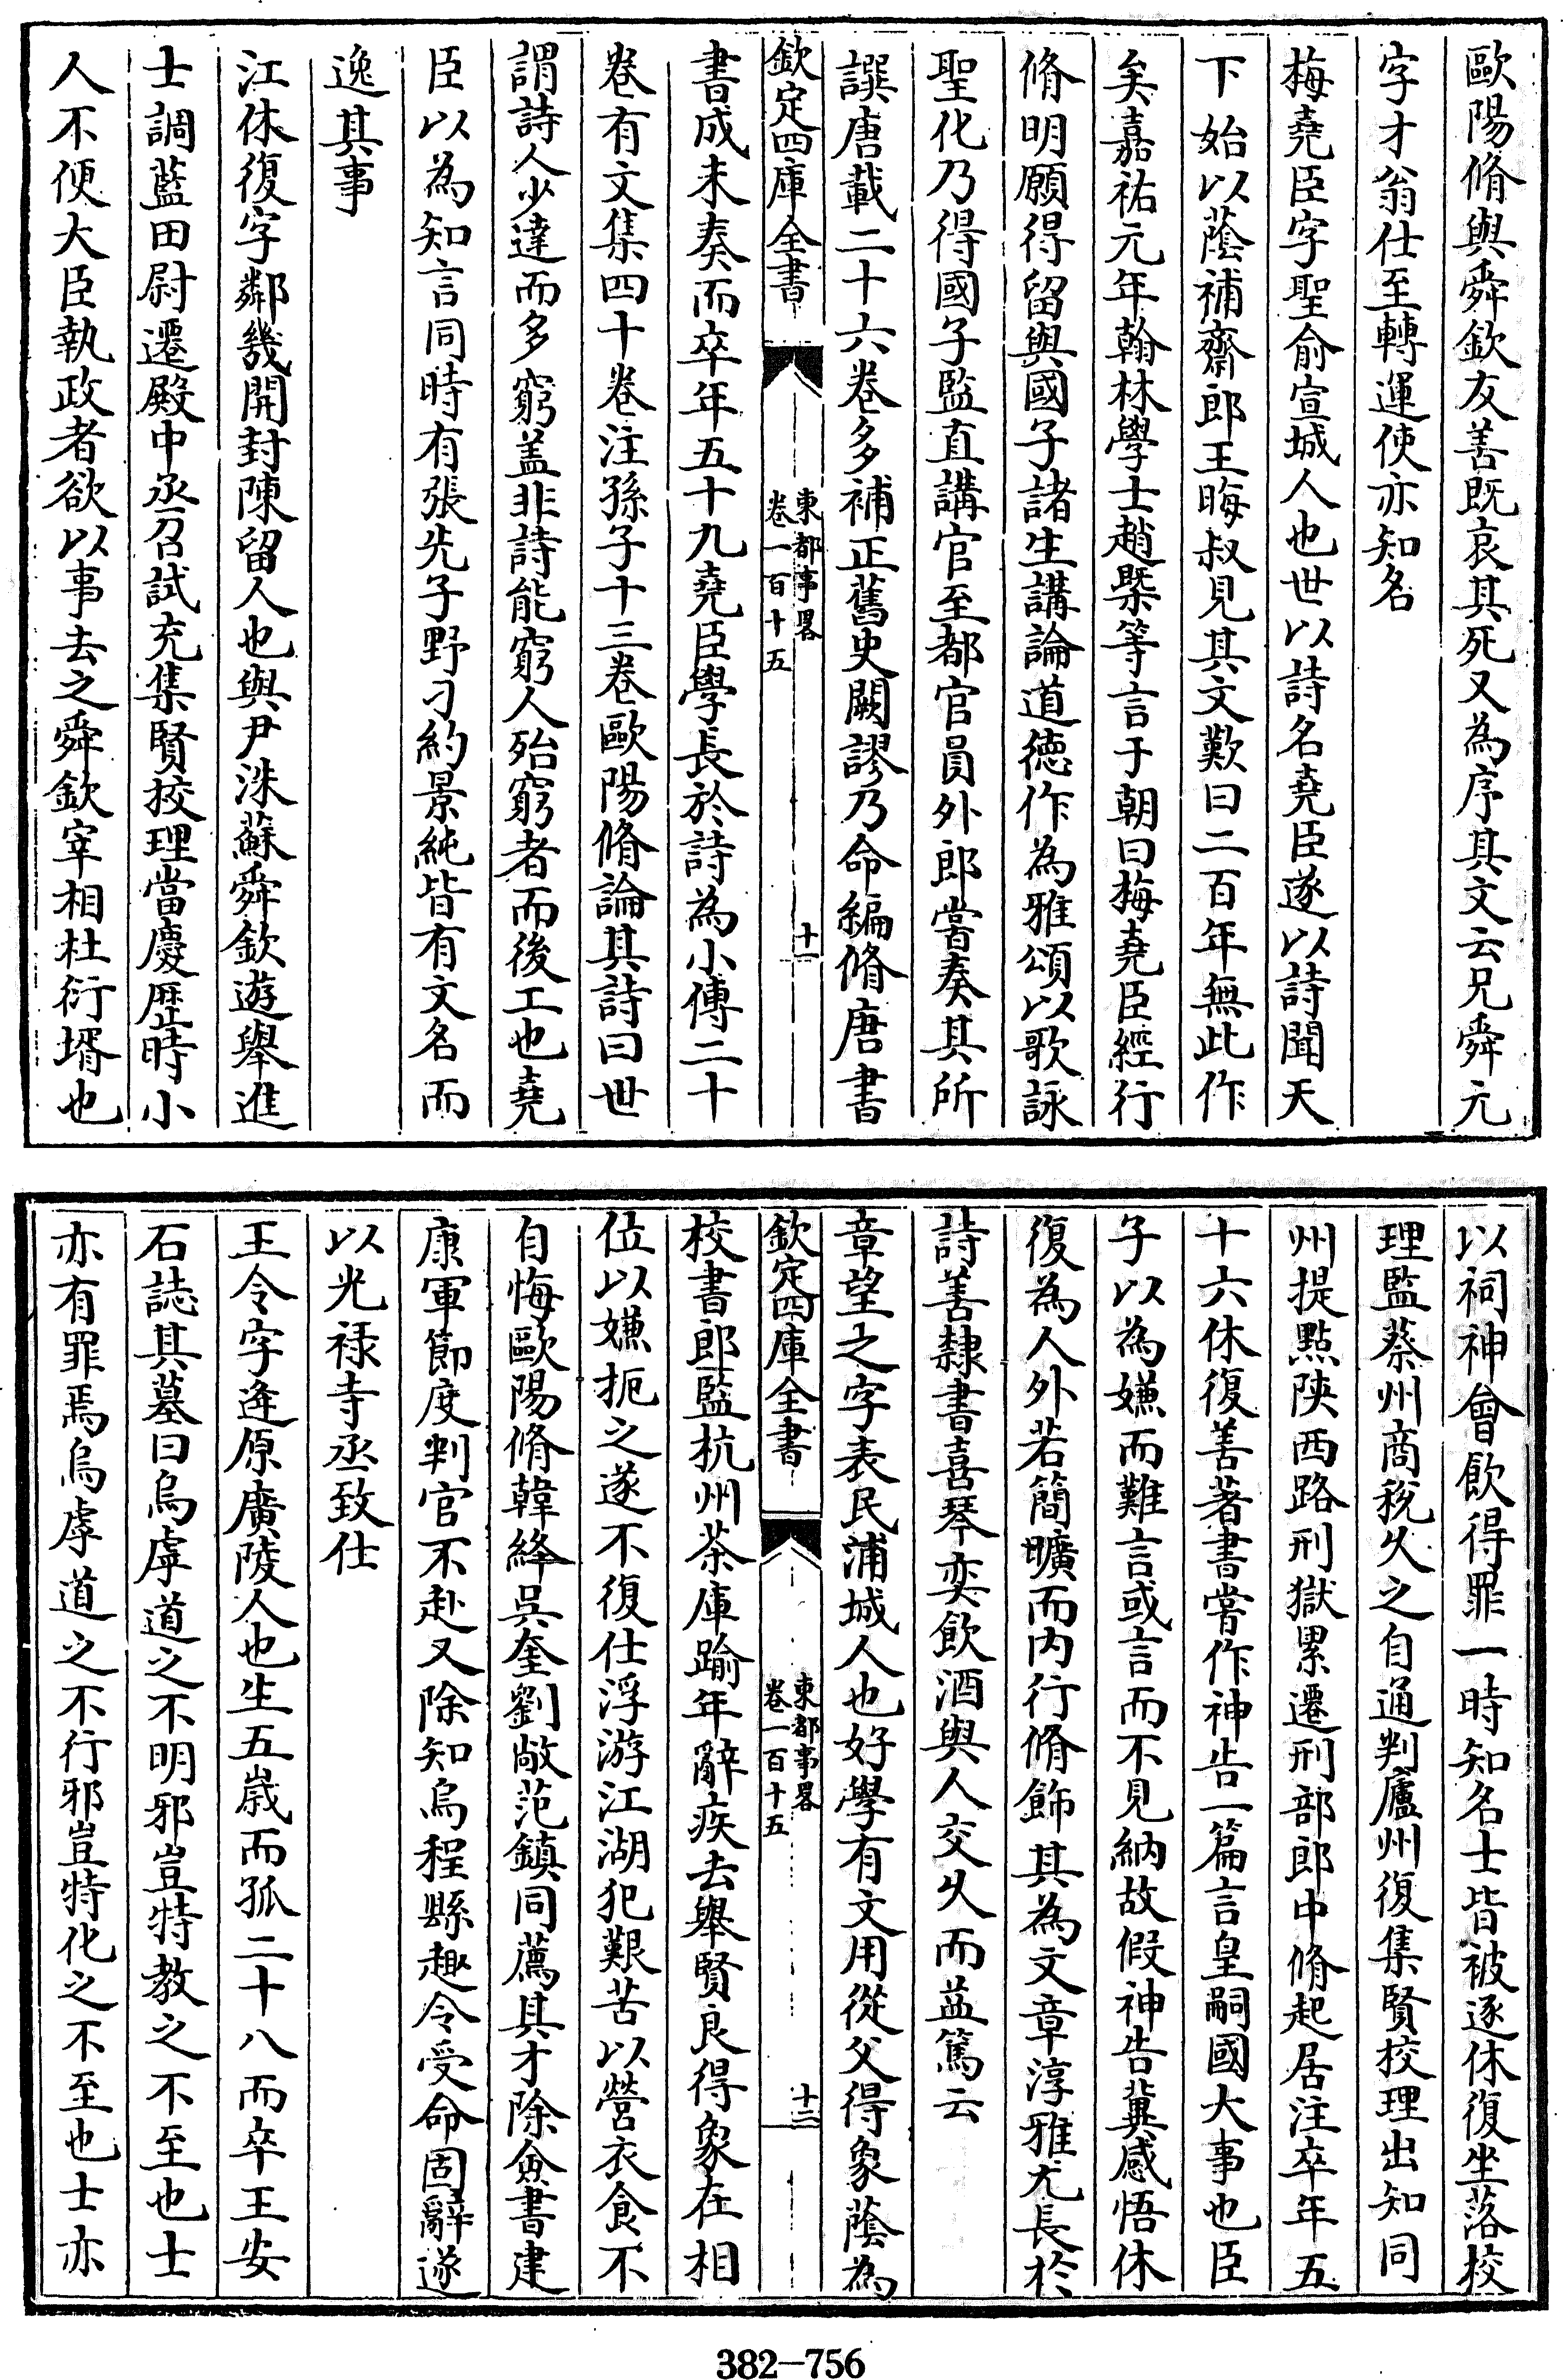 歐陽脩與舜欽友善既哀其死又為序其文云兄舜元
字才翁仕至轉運使亦知名
梅堯臣字聖俞宣城人也世以詩名堯臣遂以詩聞天
下始以蔭補齋郎王晦叔見其文歎曰二百年無此作
矣嘉祐元年翰林學士趙槩等言于朝曰梅堯臣經行
脩明願得留與國子諸生講論道徳作為雅頌以歌詠
聖化乃得國子監直講官至都官員外郎甞奏其所
譔唐載二十六卷多補正舊史闕謬乃命編脩唐書
欽定四庫全書
東都事畧
卷一百十五
十一
書成未奏而卒年五十九堯臣學長於詩為小傳二十
卷有文集四十卷注孫子十三卷歐陽脩論其詩曰世
謂詩人少達而多窮盖非詩能窮人殆窮者而後工也堯
臣以為知言同時有張先子野刁約景純皆有文名而
逸其事
江休復字鄰幾開封陳留人也與尹洙蘇舜欽遊舉進
士調藍田尉遷殿中丞召試充集賢挍理當慶歴時小
人不便大臣執政者欲以事去之舜欽宰相杜衍壻也
以祠神會飲得罪一時知名士皆被逐休復坐落挍
理監蔡州商稅久之自通判廬州復集賢挍理出知同
州提點陜西路刑獄累遷刑部郎中脩起居注卒年五
十六休復善著書甞作神告一篇言皇嗣國大事也臣
子以為嫌而難言或言而不見納故假神告冀感悟休
復為人外若簡曠而内行脩飾其為文章淳雅尤長於
詩善隸書喜琴奕飲酒與人交久而益篤云
章望之字表民浦城人也好學有文用從父得象蔭為
欽定四庫全書
東都事畧
卷一百十五
十二
校書郎監杭州茶庫踰年辭疾去舉賢良得象在相
位以嫌扼之遂不復仕浮游江湖犯艱苦以營衣食不
自悔歐陽脩韓絳吳奎劉敞范鎮同薦其才除僉書建
康軍節度判官不赴又除知烏程縣趣令受命固辭遂
以光禄寺丞致仕
王令字逄原廣陵人也生五歳而孤二十八而卒王安
石誌其墓曰烏虖道之不明邪豈特教之不至也士
亦有罪焉烏虖道之不行邪豈特化之不至也士亦
382—756